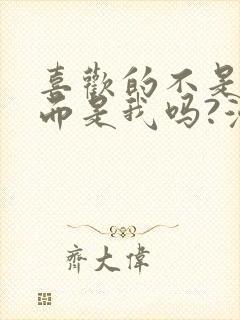 喜歡的不是
而是我吗?
齊大偉